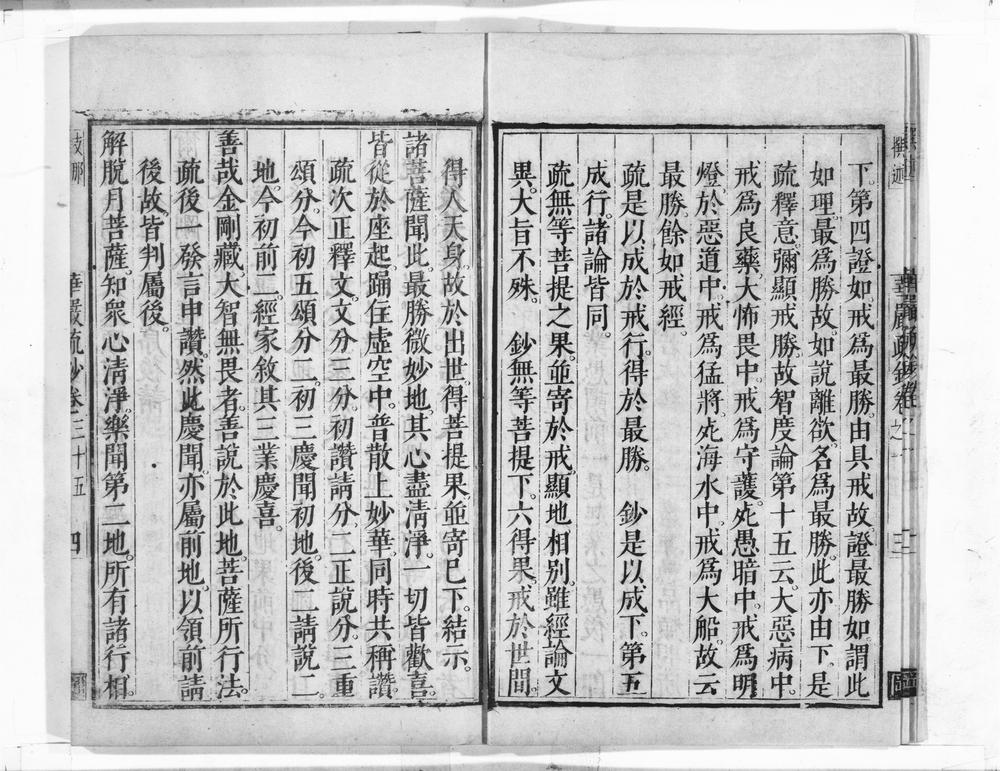 撰述
下。第四證如戒爲最勝。由具戒故。證最勝如。謂此
如理。最爲勝故。如說離欲。名爲最勝。此亦由下。是
疏釋意。彌顯戒勝。故智度論第十五云。大惡病中。
戒爲良藥。大怖畏中。戒爲守護。死愚暗中。戒爲明
燈。於惡道中。戒爲猛將。死海水中。戒爲大船。故云
最勝。餘如戒經。
疏是以成於戒行。得於最勝。　鈔是以成下。第五
成行。諸論皆同。
疏無等菩提之果。並寄於戒。顯地相別。雖經論文
異。大旨不殊。　鈔無等菩提下。六得果。戒於世間。
得人天身。故於出世。得菩提果。並寄已下。結示。
諸菩薩聞此。最勝微妙地。其心盡清淨。一切皆歡喜。
皆從於座起。踊住虛空中。普散上妙華。同時共稱讚。
疏次正釋文。文分三分。初讚請分。二正說分。三重
頌分。今初五頌分二。初三慶聞初地。後二請說二
地。今初前二。經家敘其三業慶喜。
善哉金剛藏。大智無畏者。善說於此地。菩薩所行法。
疏後一發言申讚。然此慶聞。亦屬前地。以領前請
後故。皆判屬後。
解脫月菩薩。知衆心清淨。樂聞第二地。所有諸行相。
支那　華嚴疏鈔卷三十五　四